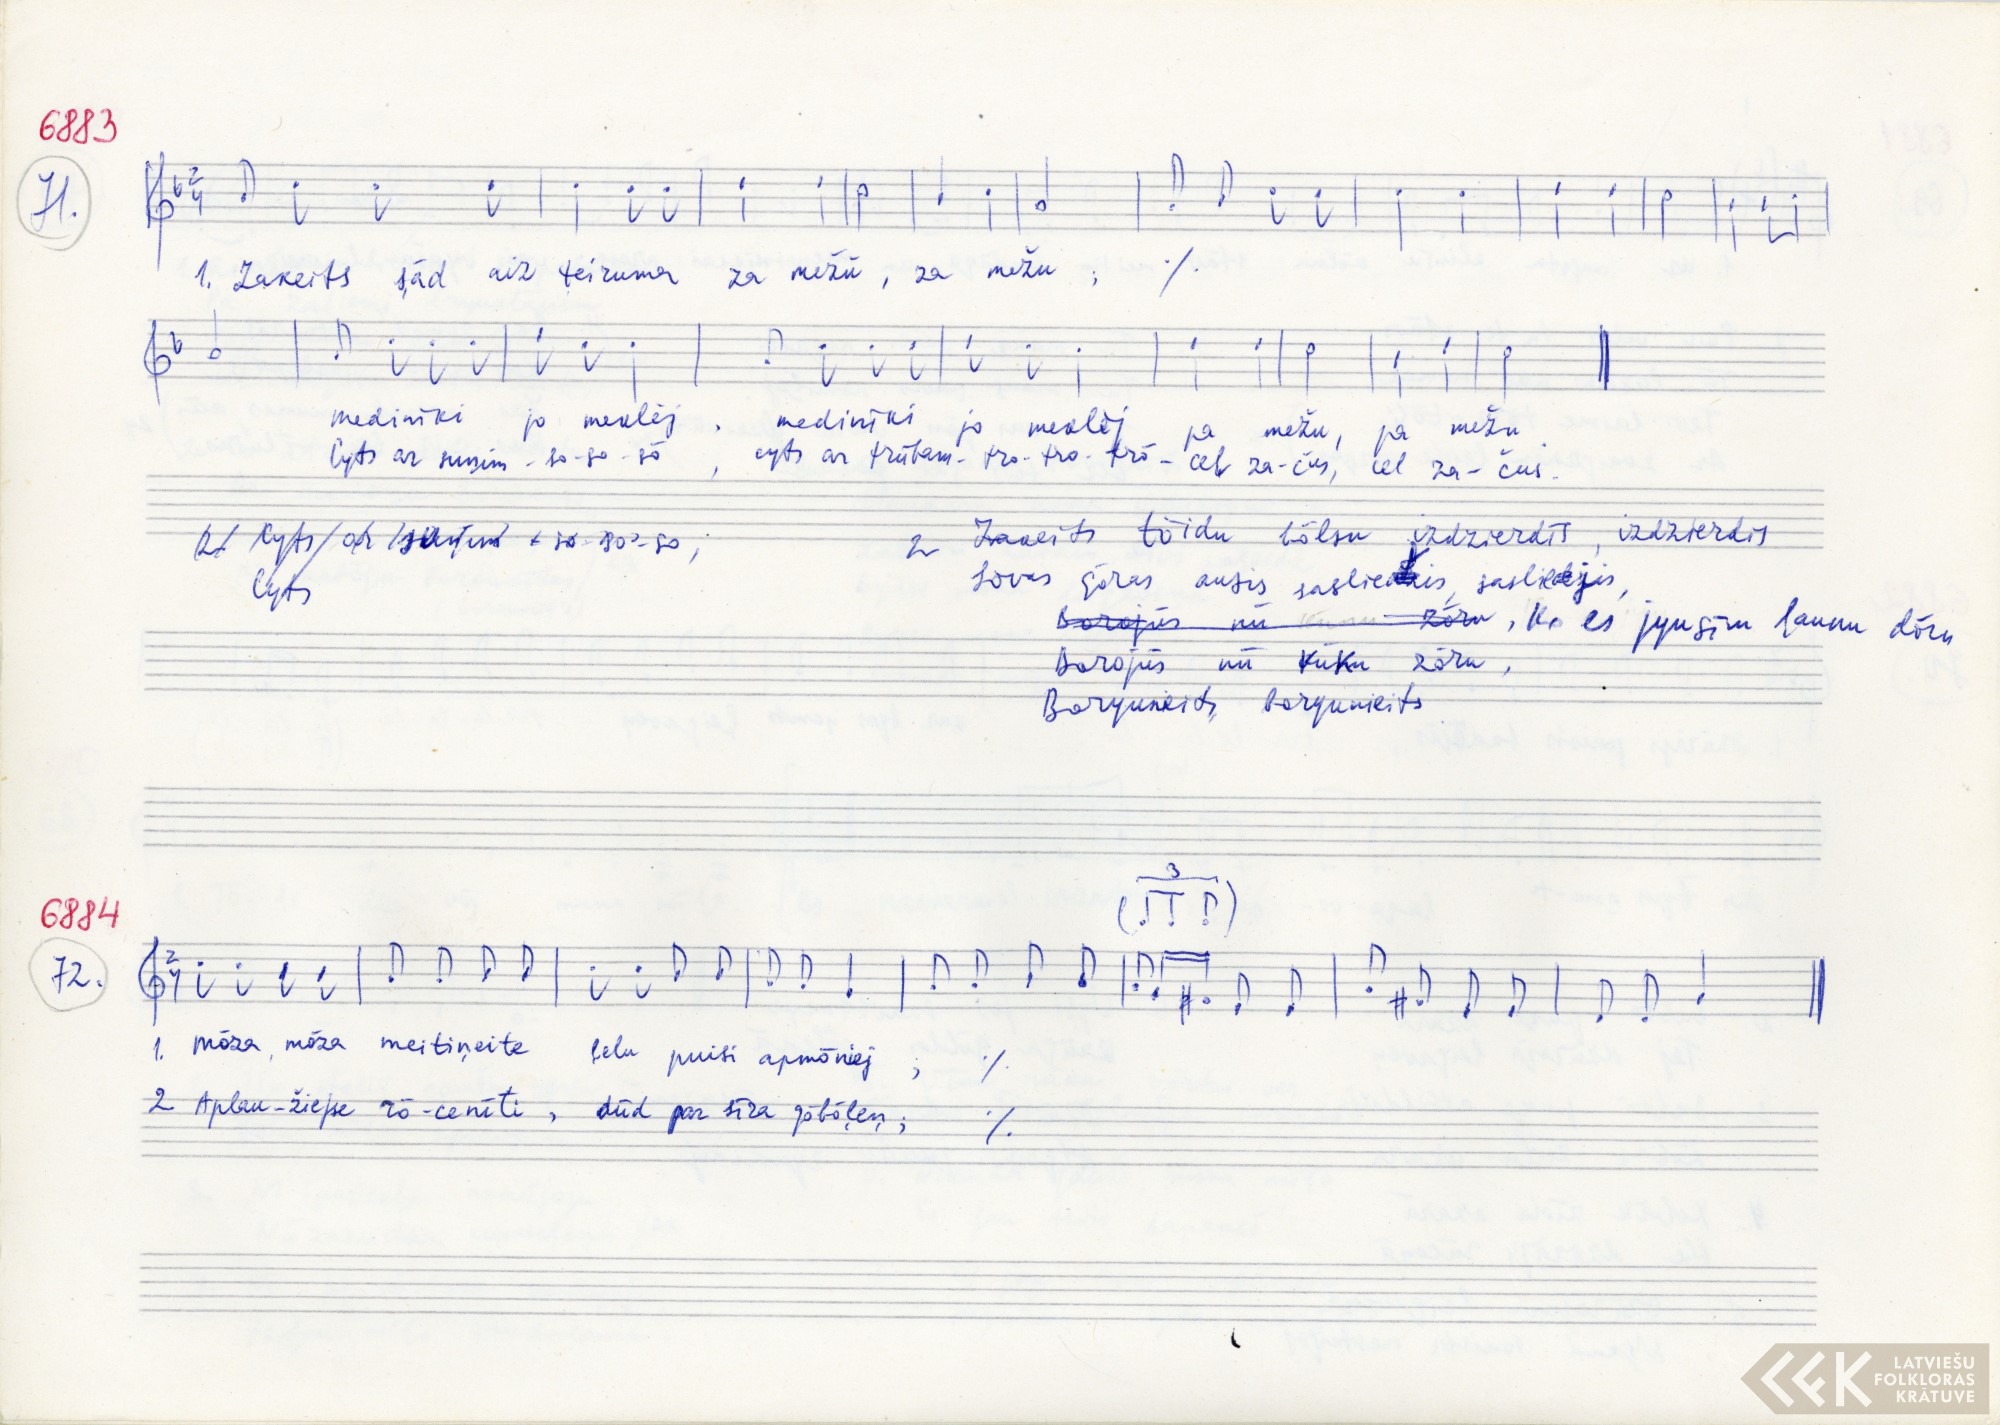 6883
71.
1. Zakeits sād aiz teiruma za mežu, za mežu ; ·/.
medinīki jo meklēj, medinīki jo meklēj pa mežu, pa mežu
Cyts ar sunim - so-so-sō, cyts ar trūbam - tro-tro-trō - cel za-čus, cel za-čus.
Cyts ar - so-so-so,
Cyts
2 Zakeits tōidu bōlsu izdzierdīs, izdzierdis
Sovas gōras ausis
Borojūs nū zōru, Ka es jyugim ļaunu dōru
Borojūs nū kūku zōru,
Borguneits, borguneits
6884
3
72.
1. mōza, mōza meitiņeite lelu puisi apmōniej ; ·/.
2 Aplau-žiejse rō-ceniti, dūd par sīra gōbōleņ ; ·/.
LATVIEŠU
FOLKLORAS
KRĀTUVE